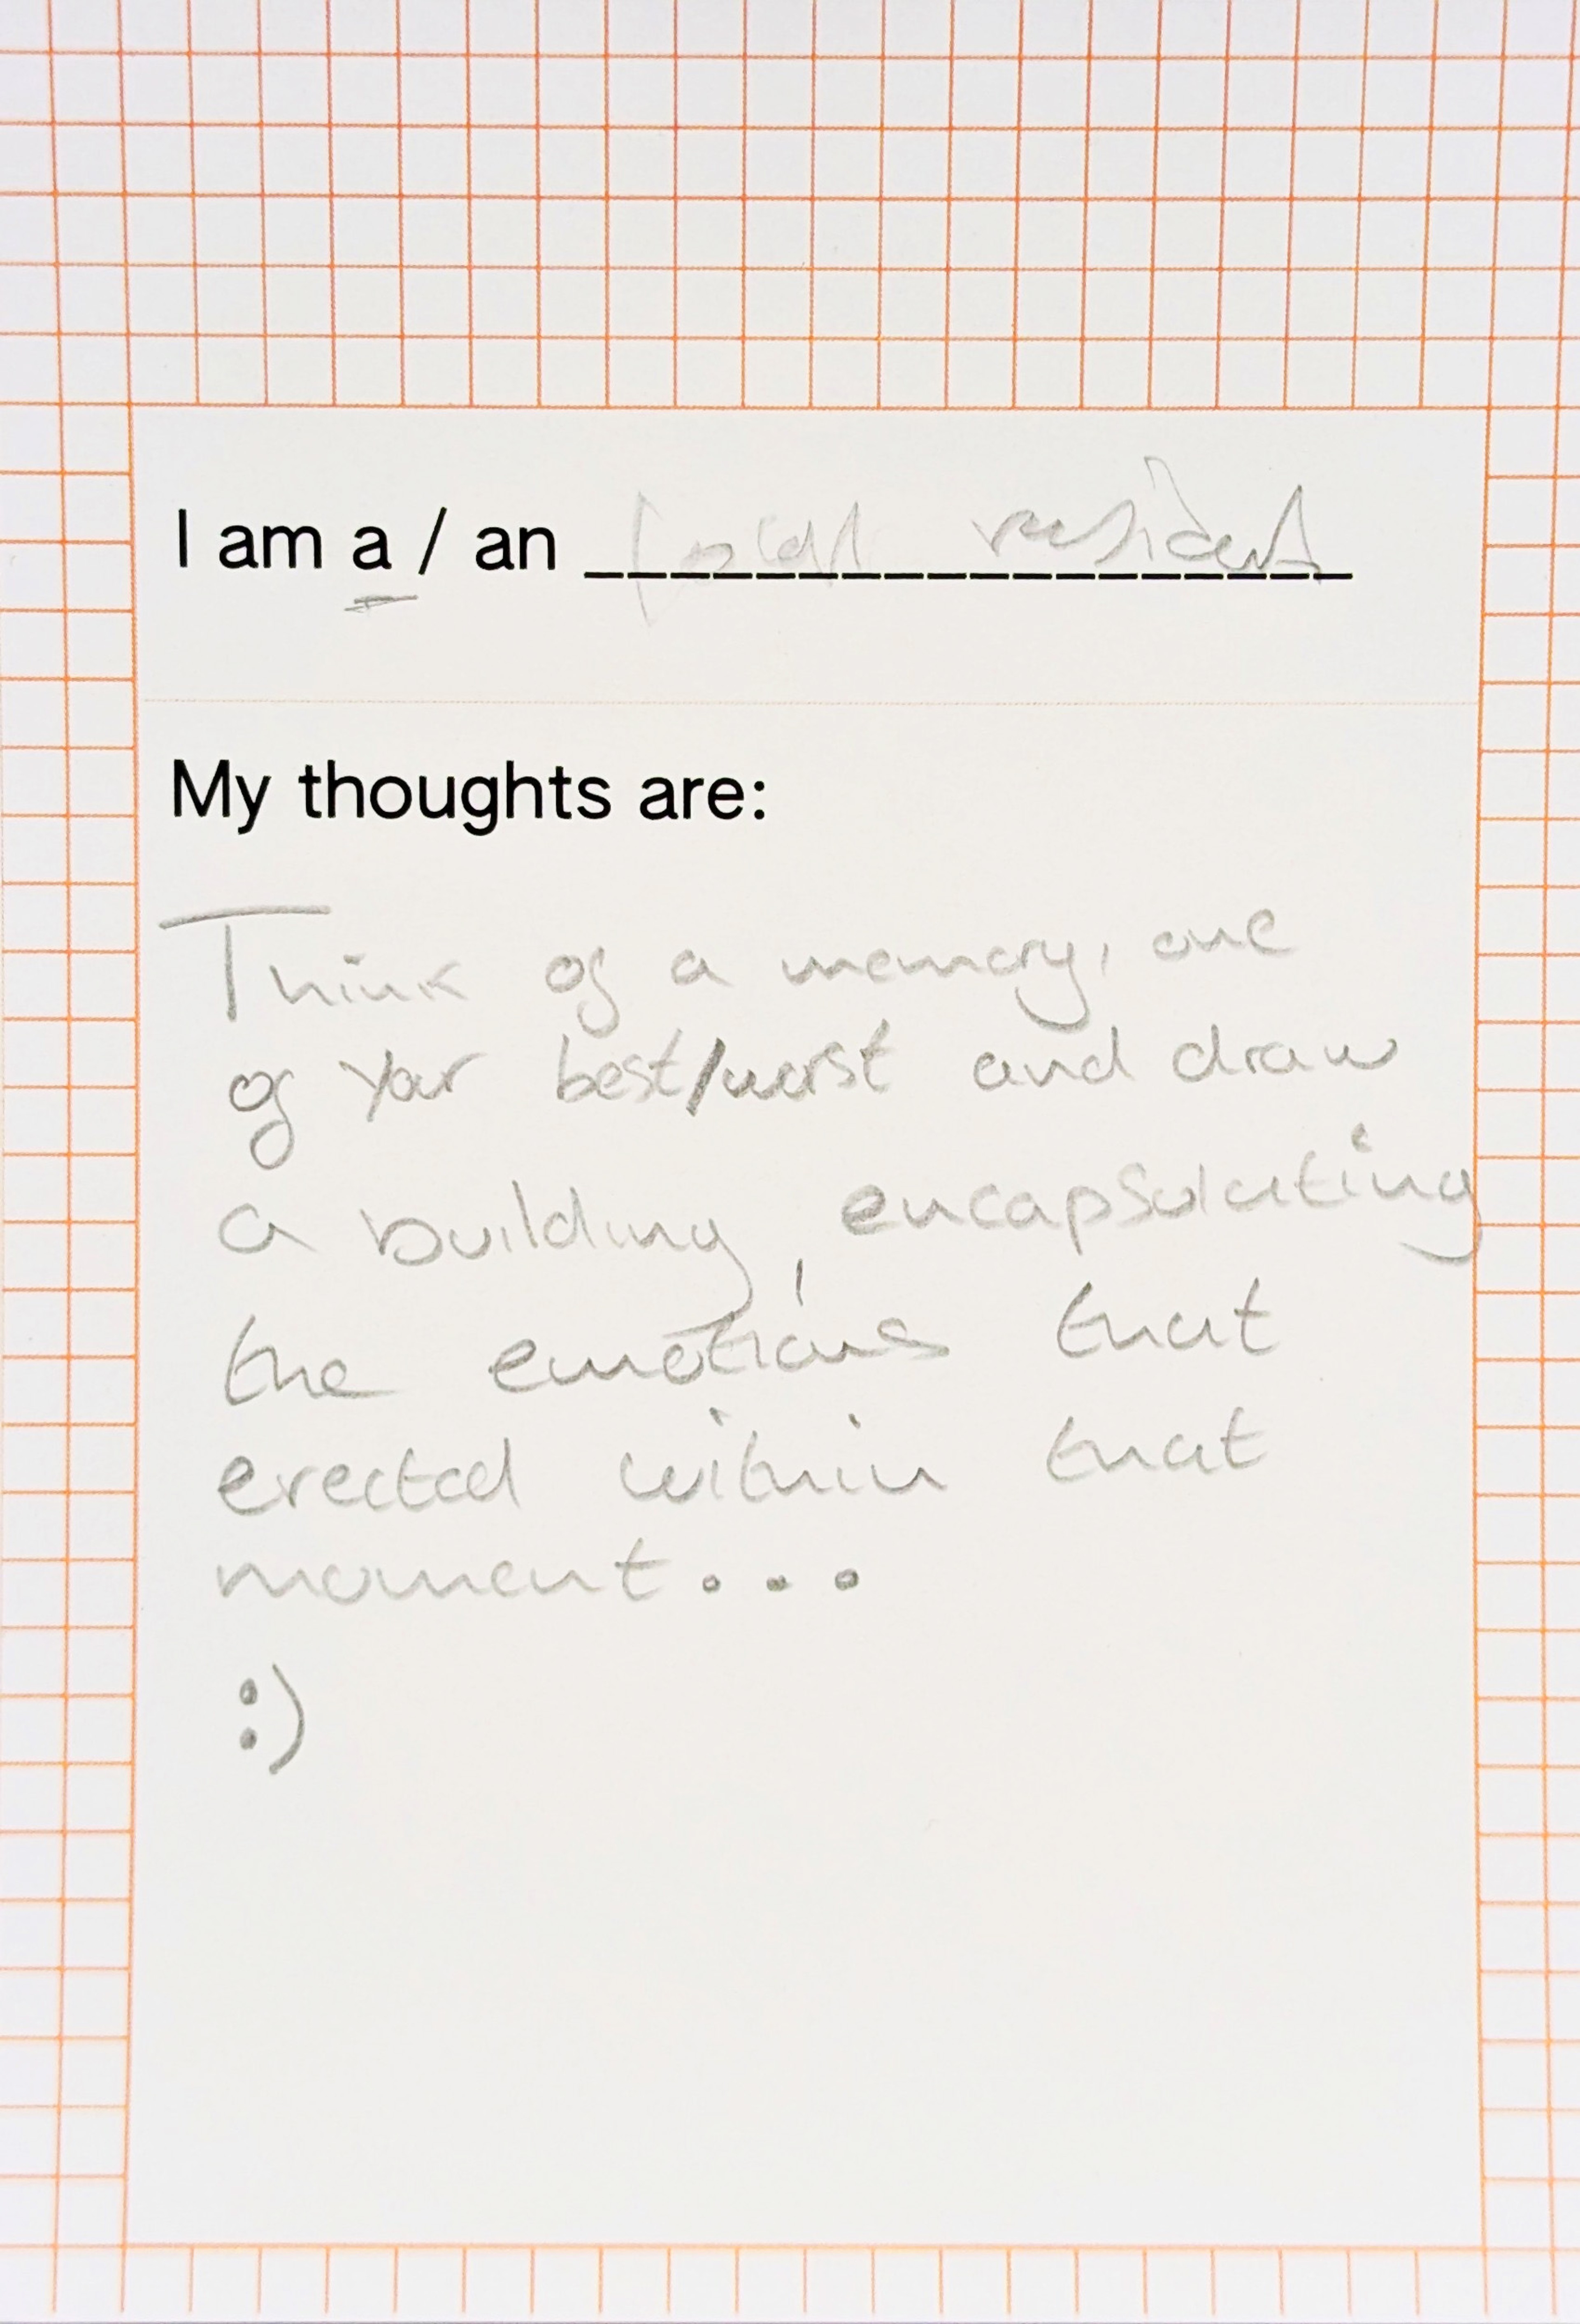 I am a / an local resident
My thoughts are:
Think of a memory, one
of your best/worst and draw
a building, encapsulating
the emotions that
erected within that
moment...
:)